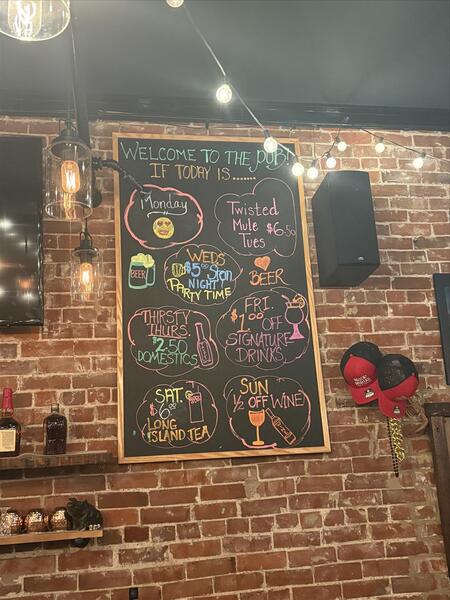 WELCOME TO THE PUB!
IF TODAY IS......
Monday
Twisted
Mule $6.50
Tues
BEER
WEDS
$5.00 
NIGHT
PARTY TIME
BEER
THIRSTY
THURS.
$2.50
DOMESTICS
FRI.
$1.00 OFF
SIGNATURE
DRINKS
SAT.
$6.00
LONG
ISLAND TEA
SUN
1/2 OFF WINE